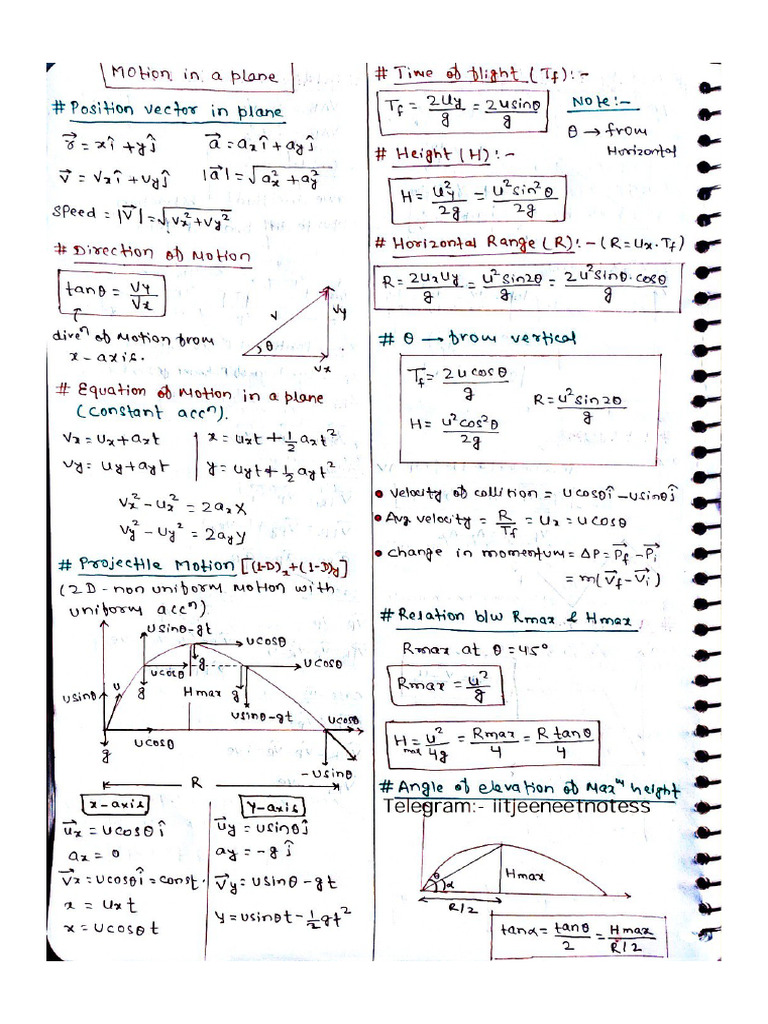 Motion in a plane
# Position vector in plane
r⃗ = xî + yĵ    a⃗ = aₓî + a_yĵ
v⃗ = vₓî + v_yĵ    |a⃗| = √(aₓ² + a_y²)
Speed = |v⃗| = √(vₓ² + v_y²)
# Direction of Motion
tanθ = v_y/vₓ
direⁿ of Motion from
x-axis.
v
v_y
θ
vₓ
# Equation of Motion in a plane
(constant accⁿ).
vₓ = uₓ + aₓt    x = uₓt + ½aₓt²
v_y = u_y + a_yt    y = u_yt + ½a_yt²
vₓ² - uₓ² = 2aₓx
v_y² - u_y² = 2a_yy
# Projectile Motion [(1-D)ₓ + (1-D)_y]
(2D - non uniform motion with
uniform accⁿ)
usinθ-gt
ucosθ
g
ucosθ
ucosθ
usinθ
u
g
Hmax
g
usinθ-gt
ucosθ
ucosθ
g
-usinθ
R
x-axis    y-axis
u⃗ₓ = ucosθî    u⃗_y = usinθĵ
aₓ = 0    a_y = -gĵ
v⃗ₓ = ucosθî = const.    v⃗_y = usinθ - gt
x = uₓt    y = usinθt - ½gt²
x = ucosθt
# Time of flight (Tf):-
Tf = 2u_y/g = 2usinθ/g
Note:-
θ → from
Horizontal
# Height (H):-
H = u_y²/2g = u²sin²θ/2g
# Horizontal Range (R):- (R = uₓ.Tf)
R = 2uₓu_y/g = u²sin2θ/g = 2u²sinθ.cosθ/g
# θ → from vertical
Tf = 2ucosθ/g
R = u²sin2θ/g
H = u²cos²θ/2g
• velocity of collition = ucosθî - usinθĵ
• Avg velocity = R/Tf = uₓ = ucosθ
• change in momentum = ΔP = P⃗f - P⃗i
= m(v⃗f - v⃗i)
# Relation b/w Rmax & Hmax
Rmax at θ = 45°
Rmax = u²/g
Hmax = u²/4g = Rmax/4 = R tanθ/4
# Angle of elevation of Maxᵐ height
Telegram:- iitjeeneetnotess
θ
α
Hmax
R/2
tanα = tanθ/2 = Hmax/R/2